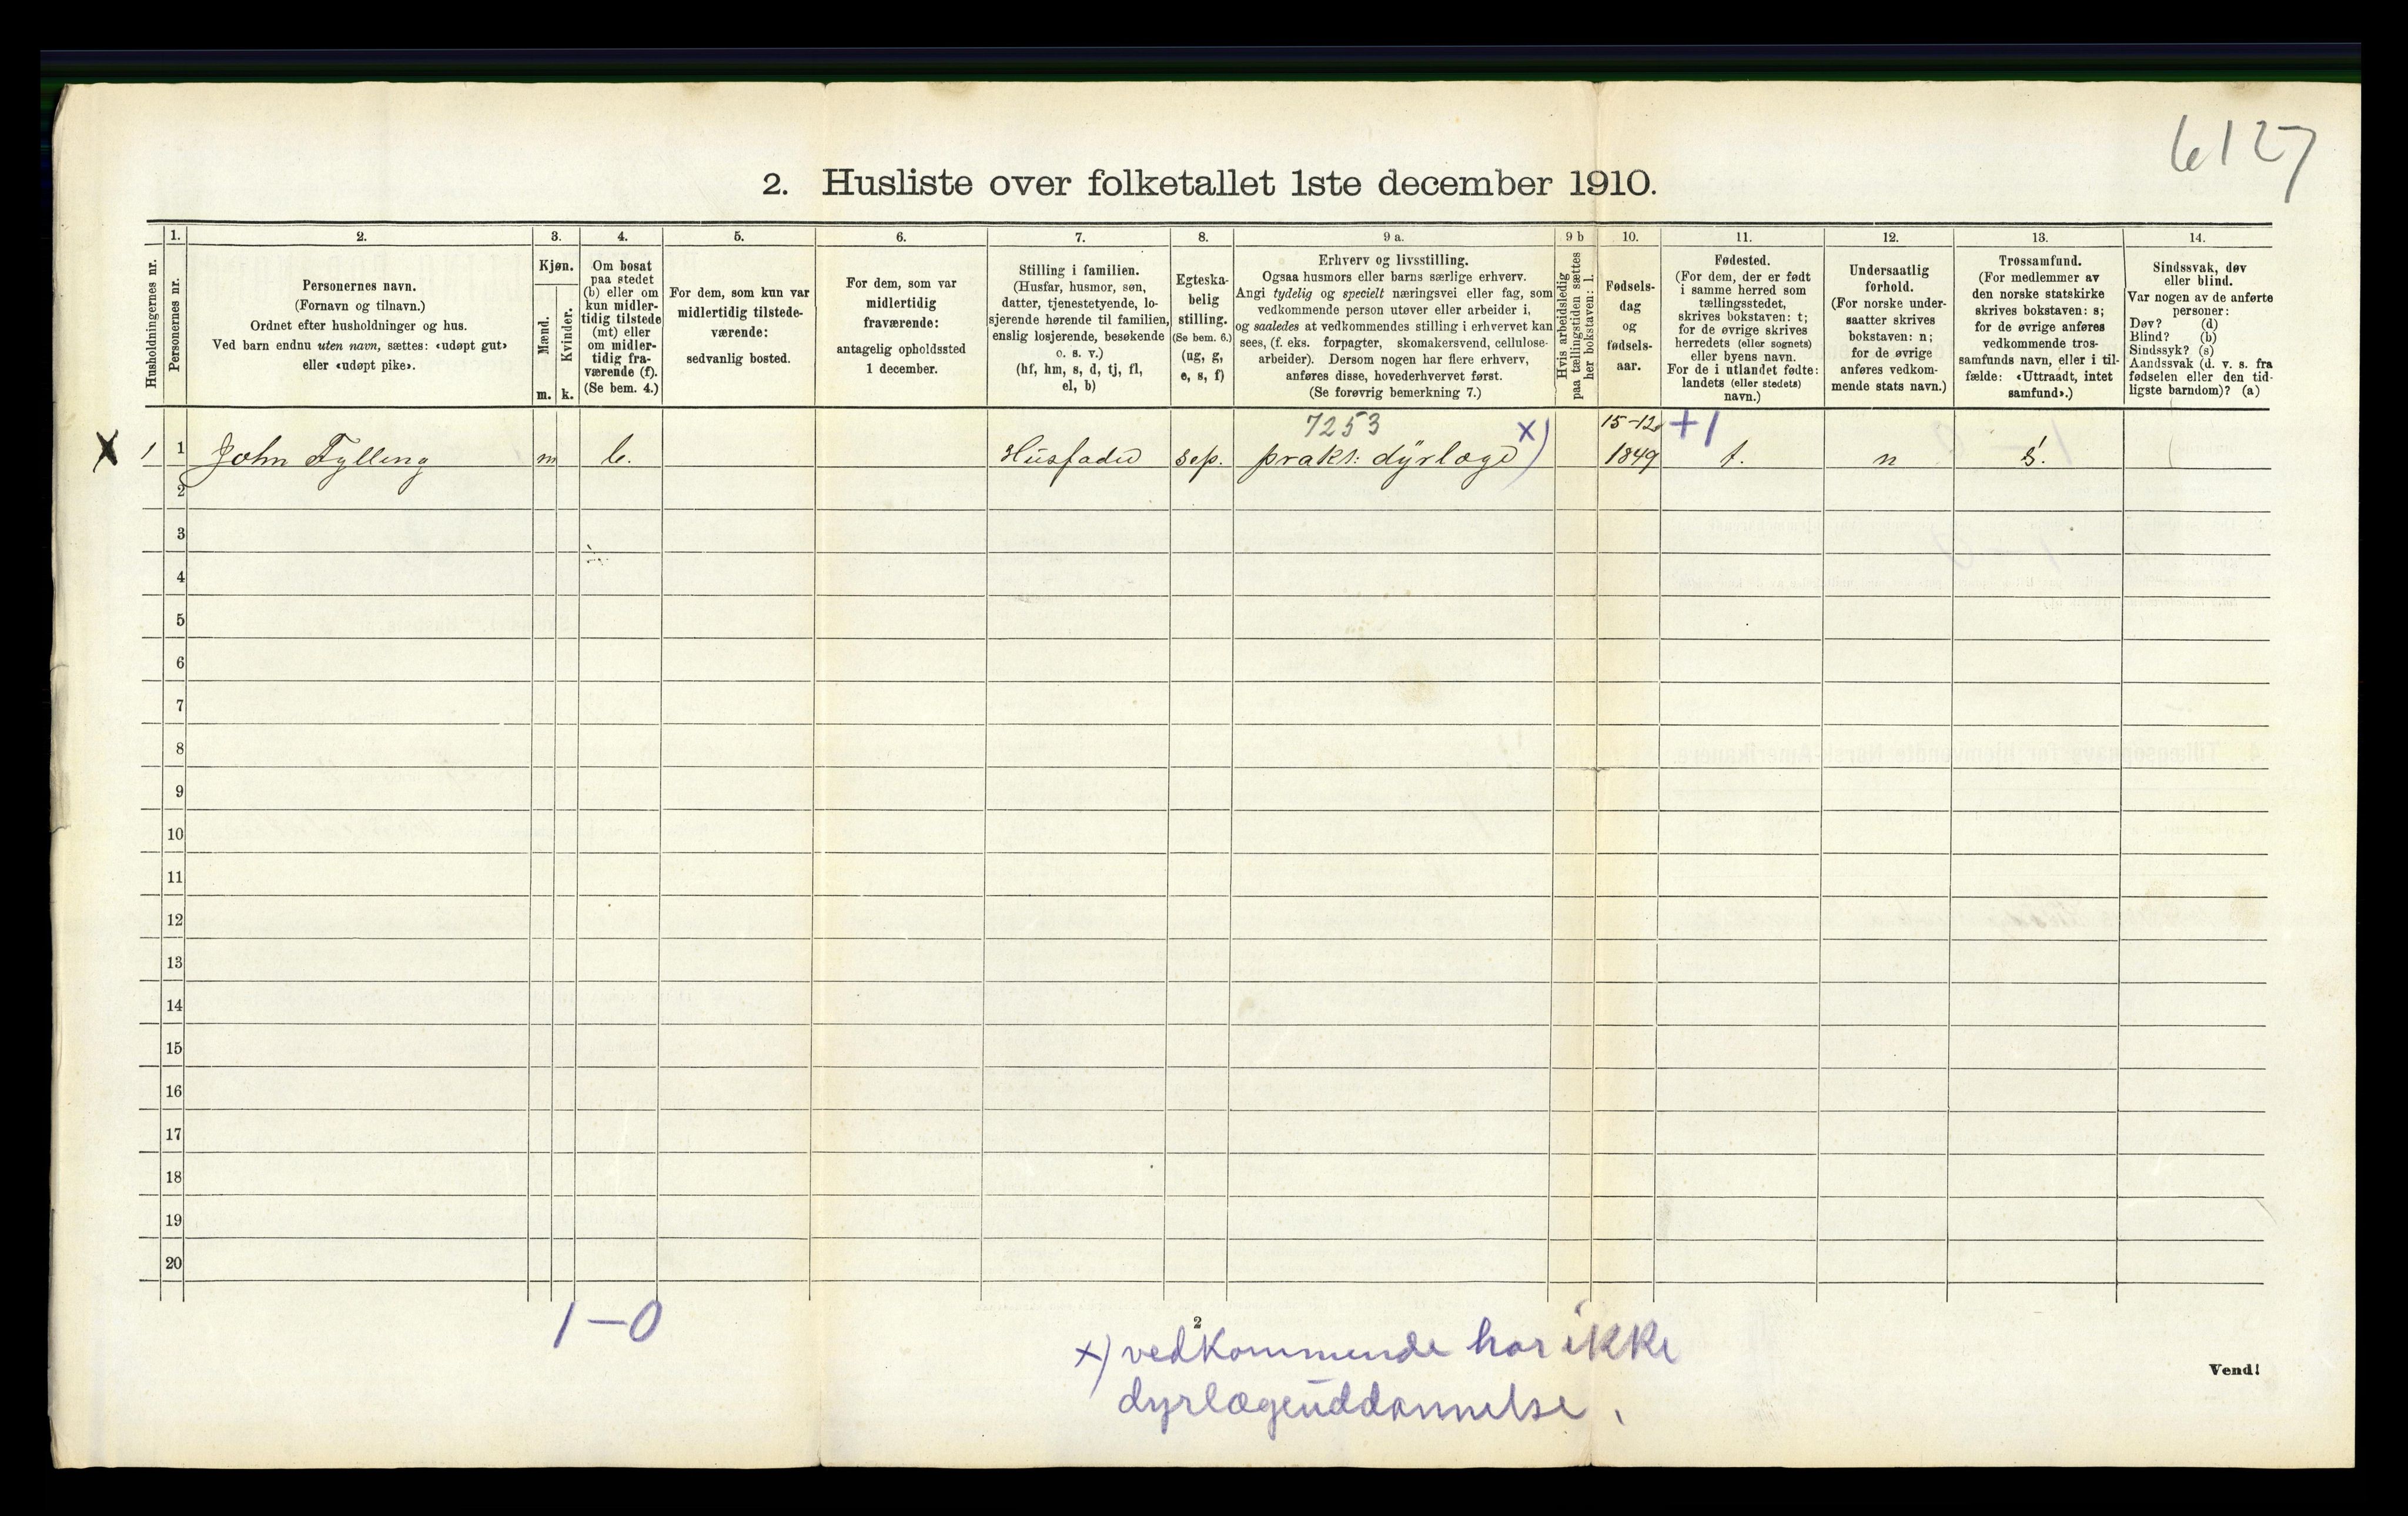 6127
2. Husliste over folketallet 1ste december 1910.
Husholdningernes nr.
1.
Personernes nr.
2.
Personernes navn.
(Fornavn og tilnavn.)
Ordnet efter husholdninger og hus.
Ved barn endnu uten navn, sættes: «udøpt gut»
eller «udøpt pike».
3.
Kjøn.
Mænd.
Kvinder.
m. k.
4.
Om bosat
paa stedet
(b) eller om
kun midler-
tidig tilstede
(mt) eller
om midler-
tidig fra-
værende (f).
(Se bem. 4.)
5.
For dem, som kun var
midlertidig tilstede-
værende:
sedvanlig bosted.
6.
For dem, som var
midlertidig
fraværende:
antagelig opholdssted
1 december.
7.
Stilling i familien.
(Husfar, husmor, søn,
datter, tjenestetyende, lo-
sjerende hørende til familien,
enslig losjerende, besøkende
o. s. v.)
(hf, hm, s, d, tj, fl,
el, b)
8.
Egteska-
belig
stilling.
(Se bem. 6.)
(ug, g,
e, s, f)
9 a.
Erhverv og livsstilling.
Ogsaa husmors eller barns særlige erhverv.
Angi tydelig og specielt næringsvei eller fag, som
vedkommende person utøver eller arbeider i,
og saaledes at vedkommendes stilling i erhvervet kan
sees, (f. eks. forpagter, skomakersvend, cellulose-
arbeider). Dersom nogen har flere erhverv,
anføres disse, hovederhvervet først.
(Se forøvrig bemerkning 7.)
9 b
Hvis arbeidsledig
paa tællingstiden sættes
her bokstaven: l.
10.
Fødsels-
dag
og
fødsels-
aar.
11.
Fødested.
(For dem, der er født
i samme herred som
tællingsstedet,
skrives bokstaven: t;
for de øvrige skrives
herredets (eller sognets)
eller byens navn.
For de i utlandet fødte:
landets (eller stedets)
navn.)
12.
Undersaatlig
forhold.
(For norske under-
saatter skrives
bokstaven: n;
for de øvrige
anføres vedkom-
mende stats navn.)
13.
Trossamfund.
(For medlemmer av
den norske statskirke
skrives bokstaven: s;
for de øvrige anføres
vedkommende tros-
samfunds navn, eller i til-
fælde: «Uttraadt, intet
samfund».)
14.
Sindssvak, døv
eller blind.
Var nogen av de anførte
personer:
Døv? (d)
Blind? (b)
Sindssyk? (s)
Aandssvak (d. v. s. fra
fødselen eller den tid-
ligste barndom)? (a)
7253 x) 15-12 +1
X 1 1 John Fylling m b. Husfader sep. prakt: dÿrlæge 1849 t. n s.
2
3
4
5
6
7
8
9
10
11
12
13
14
15
16
17
18
19
20
1-0
2
x) vedkommende har ikke
dyrlægeuddannelse.
Vend!